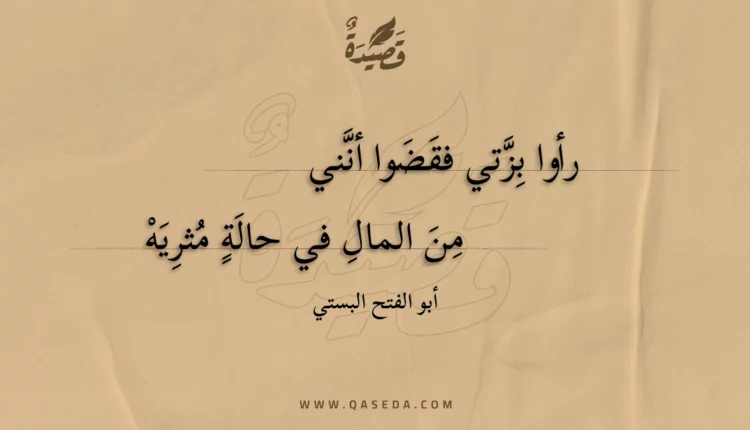 قَصِيْدَةٌ
رأوا بِزَّتي فقَضَوا أنَّني
مِنَ المالِ في حالَةٍ مُثرِيَهْ
أبو الفتح البستي
WWW.QASEDA.COM